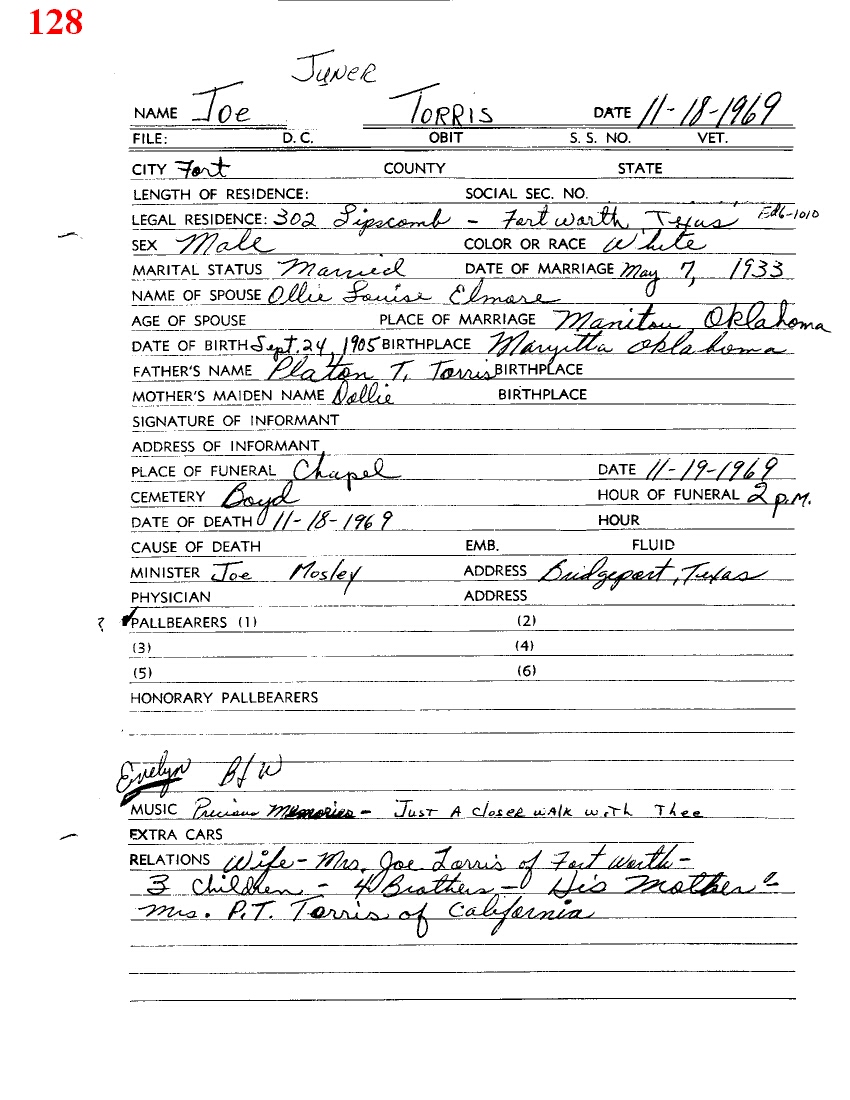 128
Juner
NAME Joe Torris DATE 11-18-1969
FILE: D.C. OBIT S.S. NO. VET.
CITY Fort COUNTY STATE
LENGTH OF RESIDENCE: SOCIAL SEC. NO.
LEGAL RESIDENCE: 302 Lipscomb - Fort Worth, Texas Ed6-1010
SEX Male COLOR OR RACE White
MARITAL STATUS Married DATE OF MARRIAGE May 7, 1933
NAME OF SPOUSE Ollie Louise Elmore
AGE OF SPOUSE PLACE OF MARRIAGE Manitou Oklahoma
DATE OF BIRTH Sept. 24, 1905 BIRTHPLACE Maryitta Oklahoma
FATHER'S NAME Platon T. Torris BIRTHPLACE
MOTHER'S MAIDEN NAME Dollie BIRTHPLACE
SIGNATURE OF INFORMANT
ADDRESS OF INFORMANT
PLACE OF FUNERAL Chapel DATE 11-19-1969
CEMETERY Boyd HOUR OF FUNERAL 2 p.M.
DATE OF DEATH 11-18-1969 HOUR
CAUSE OF DEATH EMB. FLUID
MINISTER Joe Mosley ADDRESS Bridgeport, Texas
PHYSICIAN ADDRESS
? PALLBEARERS (1) (2)
(3) (4)
(5) (6)
HONORARY PALLBEARERS
Evelyn B/W
MUSIC Precious Memories - Just A Closer WALK WITH Thee
EXTRA CARS
RELATIONS Wife - Mrs. Joe Torris of Fort Worth -
3 Children - 4 Brothers - His Mother -
Mrs. P.T. Torris of California